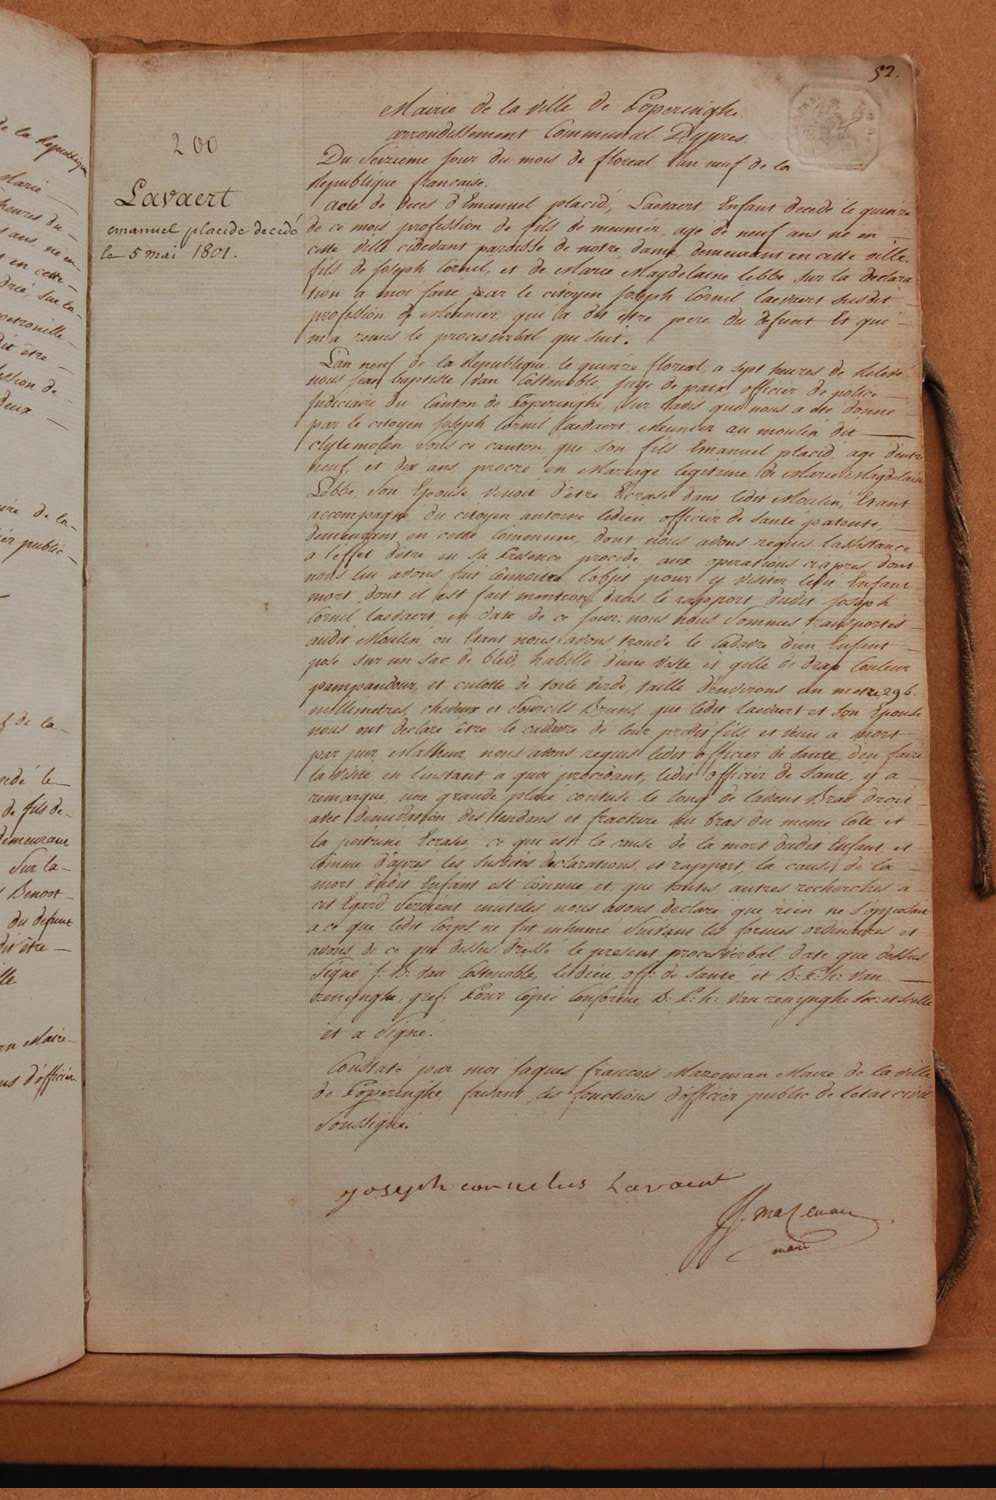 52.
200
Lavaert
emanuel placide decédé
le 5 mai 1801.
Mairie de la ville de Poperinghe
arrondissement Communal D'ypres.
Du Seizieme jour du mois de floreal L'an neuf de la
Republique francaise.
Acte de Deces d'Emanuel placid, Laevaert Enfant decedé le quinze
de ce mois profession de fils de meunier, agé de neuf ans né en
cette ville cidevant paroisse de notre dame demeurant en cette ville
fils de Joseph Cornil, et de Marie Magdelaine Lebbe sur la declara
tion a moi faite par le citoyen Joseph Cornil Laevaert susdit
profession de Meunier, qui a dit etre pere du defunt Et qui
m'a remis le procesverbal qui suit.
L'an neuf de la Republique le quinze floreal a sept heures de Relevé
nous Jean baptiste Van Costenoble, Juge de paix officier de police
Judiciaire du Canton de Poperinghe, sur l'avis que nous a été donné
par le citoyen Joseph Cornil Laevaert Meunier au moulin dit
clytemolen sous ce canton que son fils Emanuel placid agé d'entre
neuf et dix ans procréé en Mariage legitime de Marie Magdelaine
Lebbe Son Epouse venoit d'etre Ecrasé dans ledit Moulin, Etant
accompagné du citoyen antoine Ledieu officier de Santé patenté,
demeurant en cette Commune, dont nous avons requis l'assistance
a l'effet d'etre en sa Presence procedé aux operations ci apres, dont
nous lui avons fait Connoitre l'objet pour y visiter ledit Enfant
mort, dont il est fait mention dans le rapport dudit Joseph
Cornil Laevaert, en date de ce jour, nous nous sommes transportés
audit Moulin, ou Etant nous avons trouvé le Cadavre d'un Enfant
posé sur un sac de bled, habillé d'une veste et gilet de drap Couleur
pompaudour, et culotte de toile taille d'environs un metre 296
millimetres, cheveux et sourcils Bruns, que ledit Laevaert et Son Epouse
nous ont declaré être le cadavre de leur predit fils et venu a mort
par pur Malheur nous avons requis ledit officier de Santé d'en faire
la visite en l'instant a quoi procedant, ledit officier de Santé y a
remarqué, une grande plaie contuse le long de l'avant Bras droit
avec denudation des tendons et fracture du bras du meme coté et
la poitrine Ecrasée ce qui est la cause de la mort dudit Enfant, et
comme d'apres les Susdites declarations et rapport, la cause de la
mort dudit Enfant est Connue et que toutes autres recherches a
cet Egard Seroient inutiles nous avons declaré que rien ne s'opposoit
a ce que ledit Corps ne fut inhumé Suivant les formes ordinaires et
avons de ce que dessus dressé le present procesverbal date que dessus
Signé J: B: Van Costenoble, Ledieu, off: de Santé et B: P: h: Van
renynghe gref: Pour Copie Conforme B: P: h: Van renynghe
et a Signé.
Constaté par moi Jaques francois Mazeman Maire de la ville
de Poperinghe faisant les fonctions d'officier public de l'etat civil
Soussigné.
joseph cornelius Lavaert
J. f. mazeman
maire